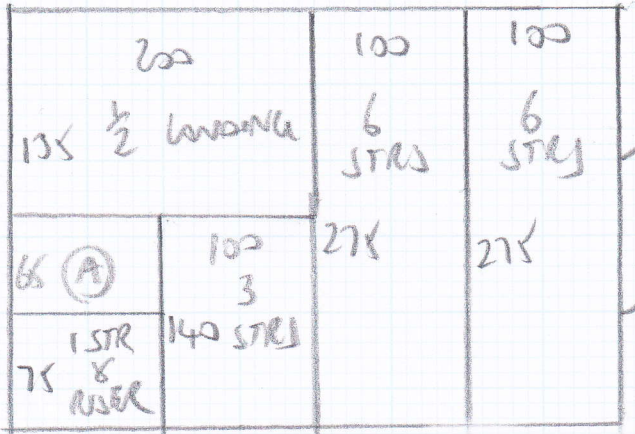 200
135 1/2 LANDING
100
6
STRS
275
100
6
STRS
275
65 A
100
3
140 STRS
1 STR
75 &
RISER